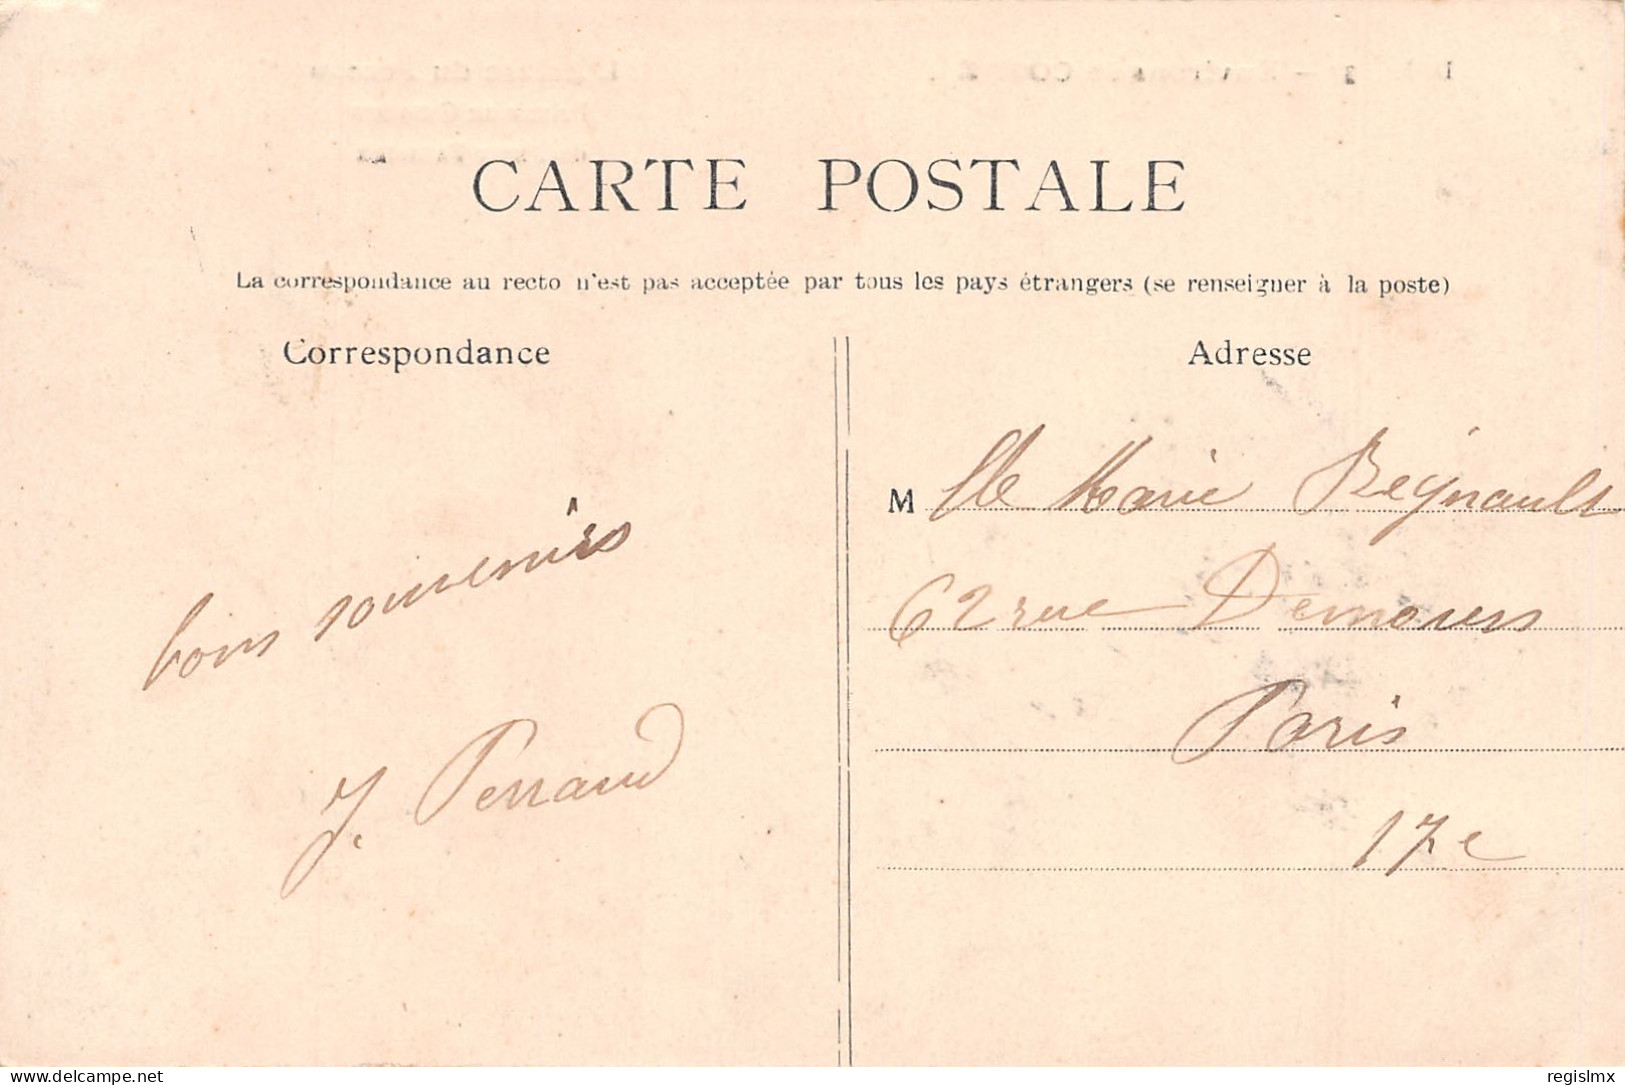 CARTE POSTALE
La correspondance au recto n'est pas acceptée par tous les pays étrangers (se renseigner à la poste)
Correspondance
Adresse
bons souvenirs
J. Perraud
M lle Marie Régnault
62 rue Demours
Paris
17e
delcampe.net
regislmx